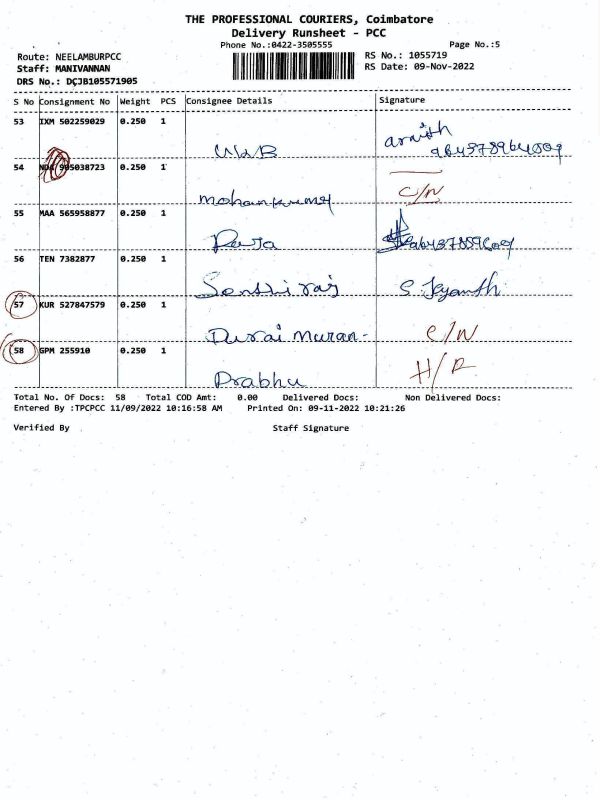 THE PROFESSIONAL COURIERS, Coimbatore
Delivery Runsheet - PCC
Phone No.:0422-3505555
Page No.:5
Route: NEELAMBURPCC
Staff: MANIVANNAN
DRS No.: DCJB105571905
RS No.: 1055719
RS Date: 09-Nov-2022
S No Consignment No Weight PCS Consignee Details Signature
53 IXM 502259029 0.250 1
54 905038723 0.250 1
mohankumar C/N
55 MAA 565958877 0.250 1
Raja
56 TEN 7382877 0.250 1
Senthil raj S. Jeyanth
57 KUR 527847579 0.250 1
Durai muran- C/N
58 GPM 255910 0.250 1
Prabhu H/R
Total No. Of Docs: 58 Total COD Amt: 0.00 Delivered Docs: Non Delivered Docs:
Entered By :TPCPCC 11/09/2022 10:16:58 AM Printed On: 09-11-2022 10:21:26
Verified By Staff Signature